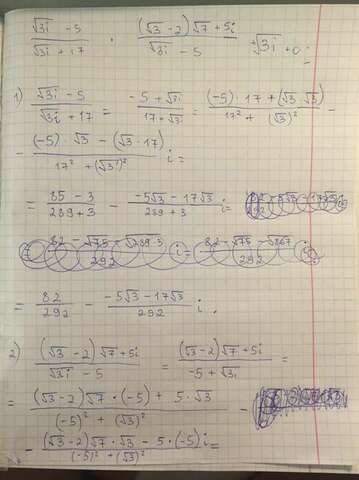 (√3i - 5)/(√3i + 17) · ((√3 - 2)√7 + 5i)/(√3i - 5) + √3i + 0 :
1) (√3i - 5)/(√3i + 17) = (-5 + √3i)/(17 + √3i) = ((-5) · 17 + (√3 · √3))/(17² + (√3)²) -
- ((-5) · √3 - (√3 · 17))/(17² + (√3)²) i =
= (85 - 3)/(289 + 3) - (-5√3 - 17√3)/(289 + 3) i =
= 82/292 - (-5√3 - 17√3)/292 i .
2) ((√3 - 2)√7 + 5i)/(√3i - 5) = ((√3 - 2)√7 + 5i)/(-5 + √3i) =
= ((√3 - 2)√7 · (-5) + 5 · √3)/((-5)² + (√3)²) -
- ((√3 - 2)√7 · √3 - 5 · (-5))/((-5)² + (√3)²) i =